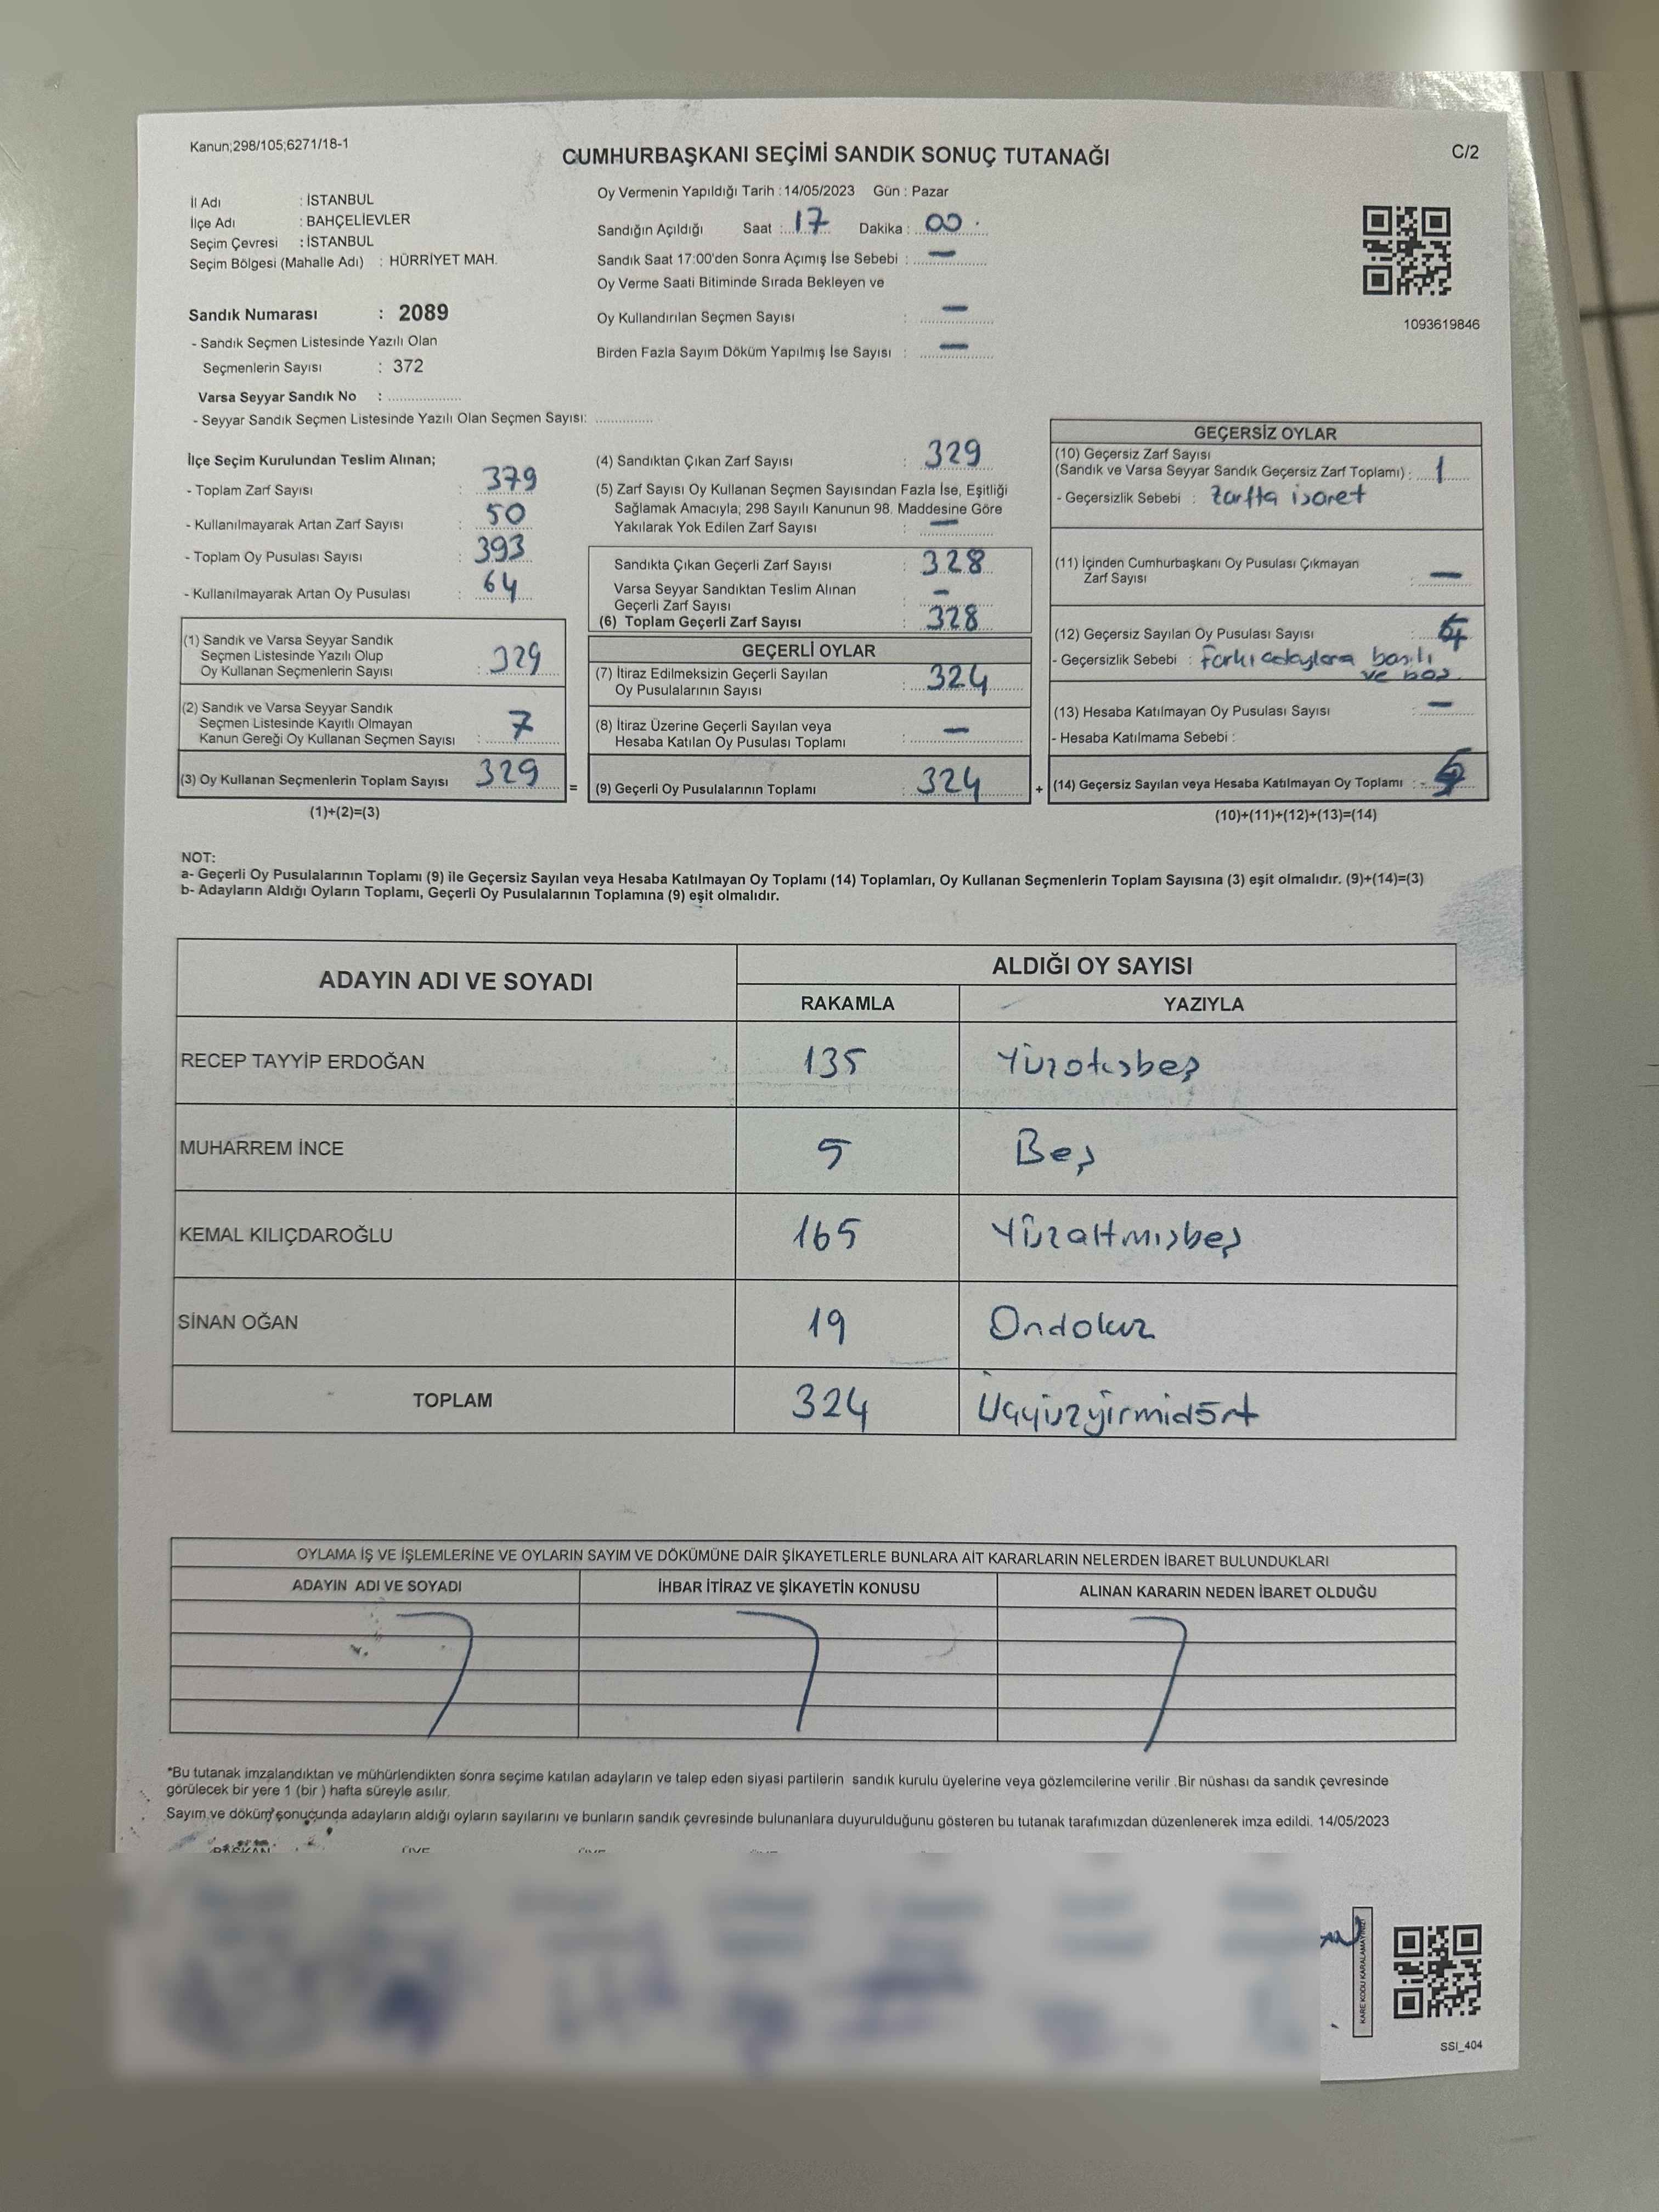 Kanun;298/105;6271/18-1
CUMHURBAŞKANI SEÇİMİ SANDIK SONUÇ TUTANAĞI
C/2
İl Adı : İSTANBUL
İlçe Adı : BAHÇELİEVLER
Seçim Çevresi : İSTANBUL
Seçim Bölgesi (Mahalle Adı) : HÜRRİYET MAH.
Sandık Numarası : 2089
- Sandık Seçmen Listesinde Yazılı Olan
Seçmenlerin Sayısı : 372
Varsa Seyyar Sandık No : ..................
- Seyyar Sandık Seçmen Listesinde Yazılı Olan Seçmen Sayısı: ..............
Oy Vermenin Yapıldığı Tarih : 14/05/2023 Gün : Pazar
Sandığın Açıldığı Saat : 17 Dakika : 00
Sandık Saat 17:00'den Sonra Açımış İse Sebebi : —
Oy Verme Saati Bitiminde Sırada Bekleyen ve
Oy Kullandırılan Seçmen Sayısı : —
Birden Fazla Sayım Döküm Yapılmış İse Sayısı : —
1093619846
İlçe Seçim Kurulundan Teslim Alınan;
- Toplam Zarf Sayısı : 379
- Kullanılmayarak Artan Zarf Sayısı : 50
- Toplam Oy Pusulası Sayısı : 393
- Kullanılmayarak Artan Oy Pusulası : 64
(1) Sandık ve Varsa Seyyar Sandık
Seçmen Listesinde Yazılı Olup
Oy Kullanan Seçmenlerin Sayısı : 329
(2) Sandık ve Varsa Seyyar Sandık
Seçmen Listesinde Kayıtlı Olmayan
Kanun Gereği Oy Kullanan Seçmen Sayısı : 7
(3) Oy Kullanan Seçmenlerin Toplam Sayısı 329
(1)+(2)=(3)
=
(4) Sandıktan Çıkan Zarf Sayısı : 329
(5) Zarf Sayısı Oy Kullanan Seçmen Sayısından Fazla İse, Eşitliği
Sağlamak Amacıyla; 298 Sayılı Kanunun 98. Maddesine Göre
Yakılarak Yok Edilen Zarf Sayısı : —
Sandıkta Çıkan Geçerli Zarf Sayısı : 328
Varsa Seyyar Sandıktan Teslim Alınan
Geçerli Zarf Sayısı : —
(6) Toplam Geçerli Zarf Sayısı : 328
GEÇERLİ OYLAR
(7) İtiraz Edilmeksizin Geçerli Sayılan
Oy Pusulalarının Sayısı : 324
(8) İtiraz Üzerine Geçerli Sayılan veya
Hesaba Katılan Oy Pusulası Toplamı : —
(9) Geçerli Oy Pusulalarının Toplamı : 324
+
GEÇERSİZ OYLAR
(10) Geçersiz Zarf Sayısı
(Sandık ve Varsa Seyyar Sandık Geçersiz Zarf Toplamı) : 1
- Geçersizlik Sebebi : Zarfta işaret
(11) İçinden Cumhurbaşkanı Oy Pusulası Çıkmayan
Zarf Sayısı : —
(12) Geçersiz Sayılan Oy Pusulası Sayısı :
- Geçersizlik Sebebi : basılı
ve boş
(13) Hesaba Katılmayan Oy Pusulası Sayısı : —
- Hesaba Katılmama Sebebi :
(14) Geçersiz Sayılan veya Hesaba Katılmayan Oy Toplamı :
(10)+(11)+(12)+(13)=(14)
NOT:
a- Geçerli Oy Pusulalarının Toplamı (9) ile Geçersiz Sayılan veya Hesaba Katılmayan Oy Toplamı (14) Toplamları, Oy Kullanan Seçmenlerin Toplam Sayısına (3) eşit olmalıdır. (9)+(14)=(3)
b- Adayların Aldığı Oyların Toplamı, Geçerli Oy Pusulalarının Toplamına (9) eşit olmalıdır.
ADAYIN ADI VE SOYADI
ALDIĞI OY SAYISI
RAKAMLA YAZIYLA
RECEP TAYYİP ERDOĞAN 135 Yüzotuzbeş
MUHARREM İNCE 5 Beş
KEMAL KILIÇDAROĞLU 165 Yüzaltmışbeş
SİNAN OĞAN 19 Ondokuz
TOPLAM 324 Üçyüzyirmidört
OYLAMA İŞ VE İŞLEMLERİNE VE OYLARIN SAYIM VE DÖKÜMÜNE DAİR ŞİKAYETLERLE BUNLARA AİT KARARLARIN NELERDEN İBARET BULUNDUKLARI
ADAYIN ADI VE SOYADI İHBAR İTİRAZ VE ŞİKAYETİN KONUSU ALINAN KARARIN NEDEN İBARET OLDUĞU
*Bu tutanak imzalandıktan ve mühürlendikten sonra seçime katılan adayların ve talep eden siyasi partilerin sandık kurulu üyelerine veya gözlemcilerine verilir .Bir nüshası da sandık çevresinde
görülecek bir yere 1 (bir ) hafta süreyle asılır.
Sayım ve döküm sonucunda adayların aldığı oyların sayılarını ve bunların sandık çevresinde bulunanlara duyurulduğunu gösteren bu tutanak tarafımızdan düzenlenerek imza edildi. 14/05/2023
BAŞKAN
KARE KODU KARALAMAYINIZ!
SSI_404